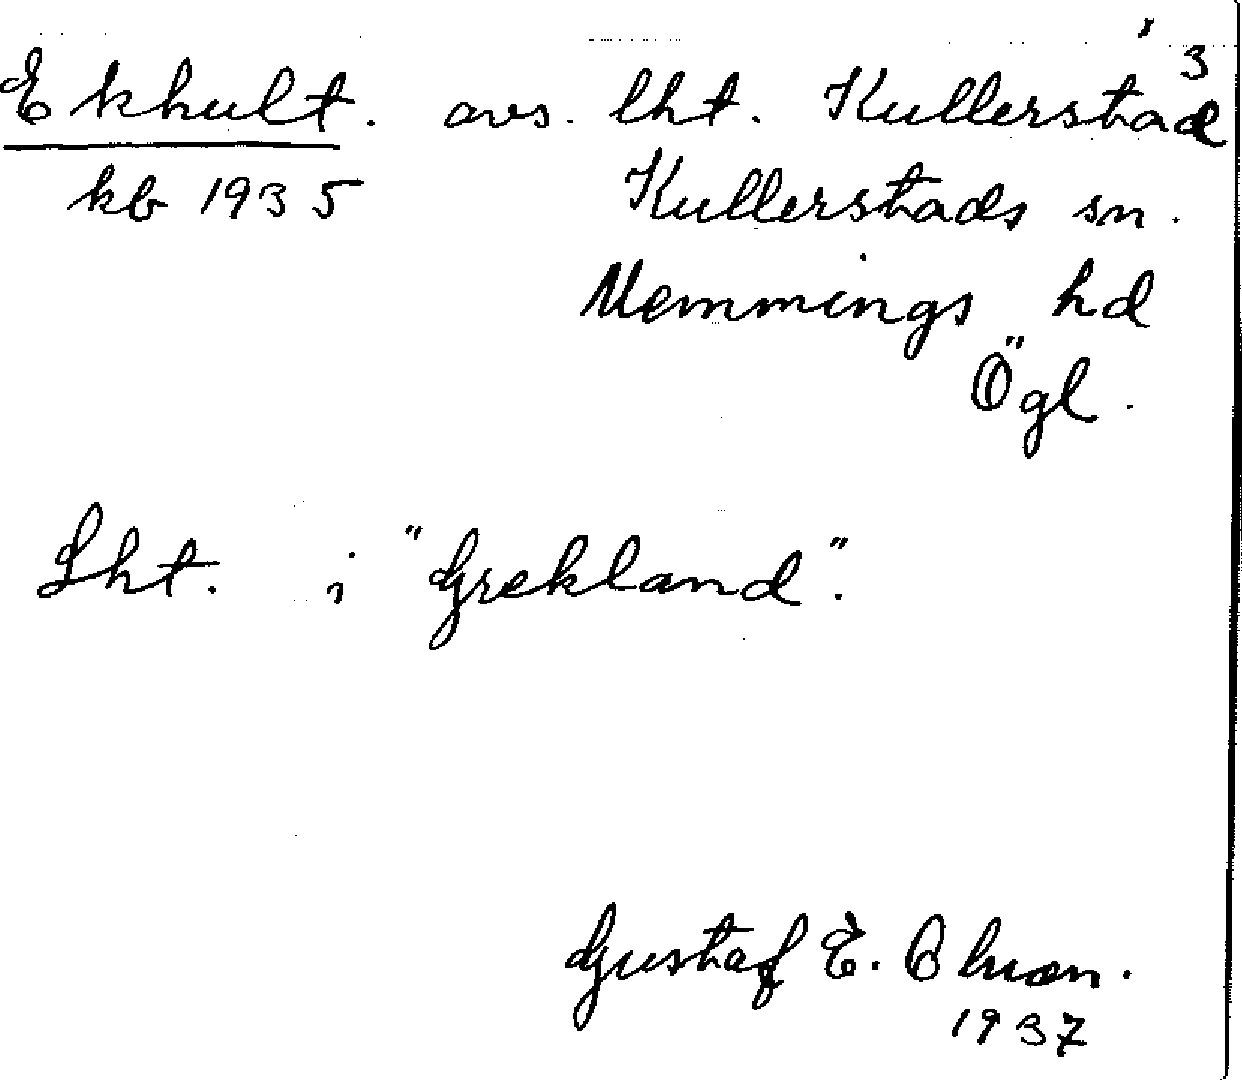 Ekhult. avs. lht. Kullerstad 3
kb 1935 Kullerstads sn.
Memmings hd
Ögl.
Lht. i "Grekland".
Gustaf E. Olson.
1937